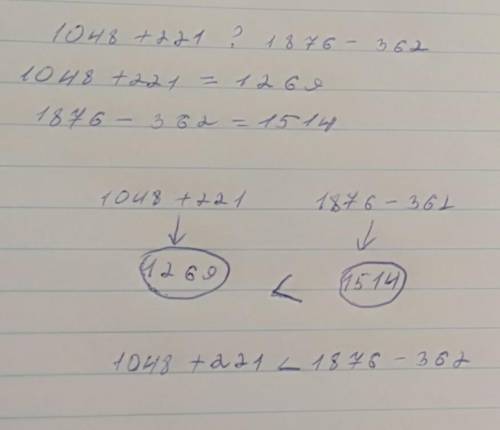 1048 + 221 ? 1876 - 362
1048 + 221 = 1269
1876 - 362 = 1514
1048 + 221 1876 - 362
↓ ↓
1269 < 1514
1048 + 221 < 1876 - 362